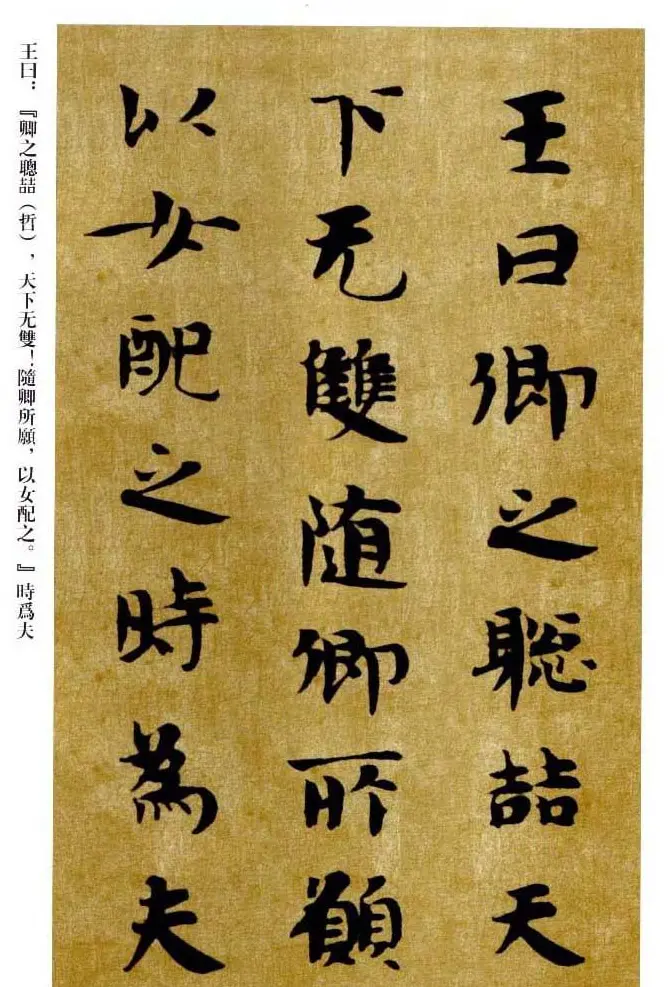 王曰卿之聡喆天
下无雙随卿所願
以女配之時為夫
王曰：『卿之聰喆（哲），天下无雙！隨卿所願，以女配之。』時爲夫